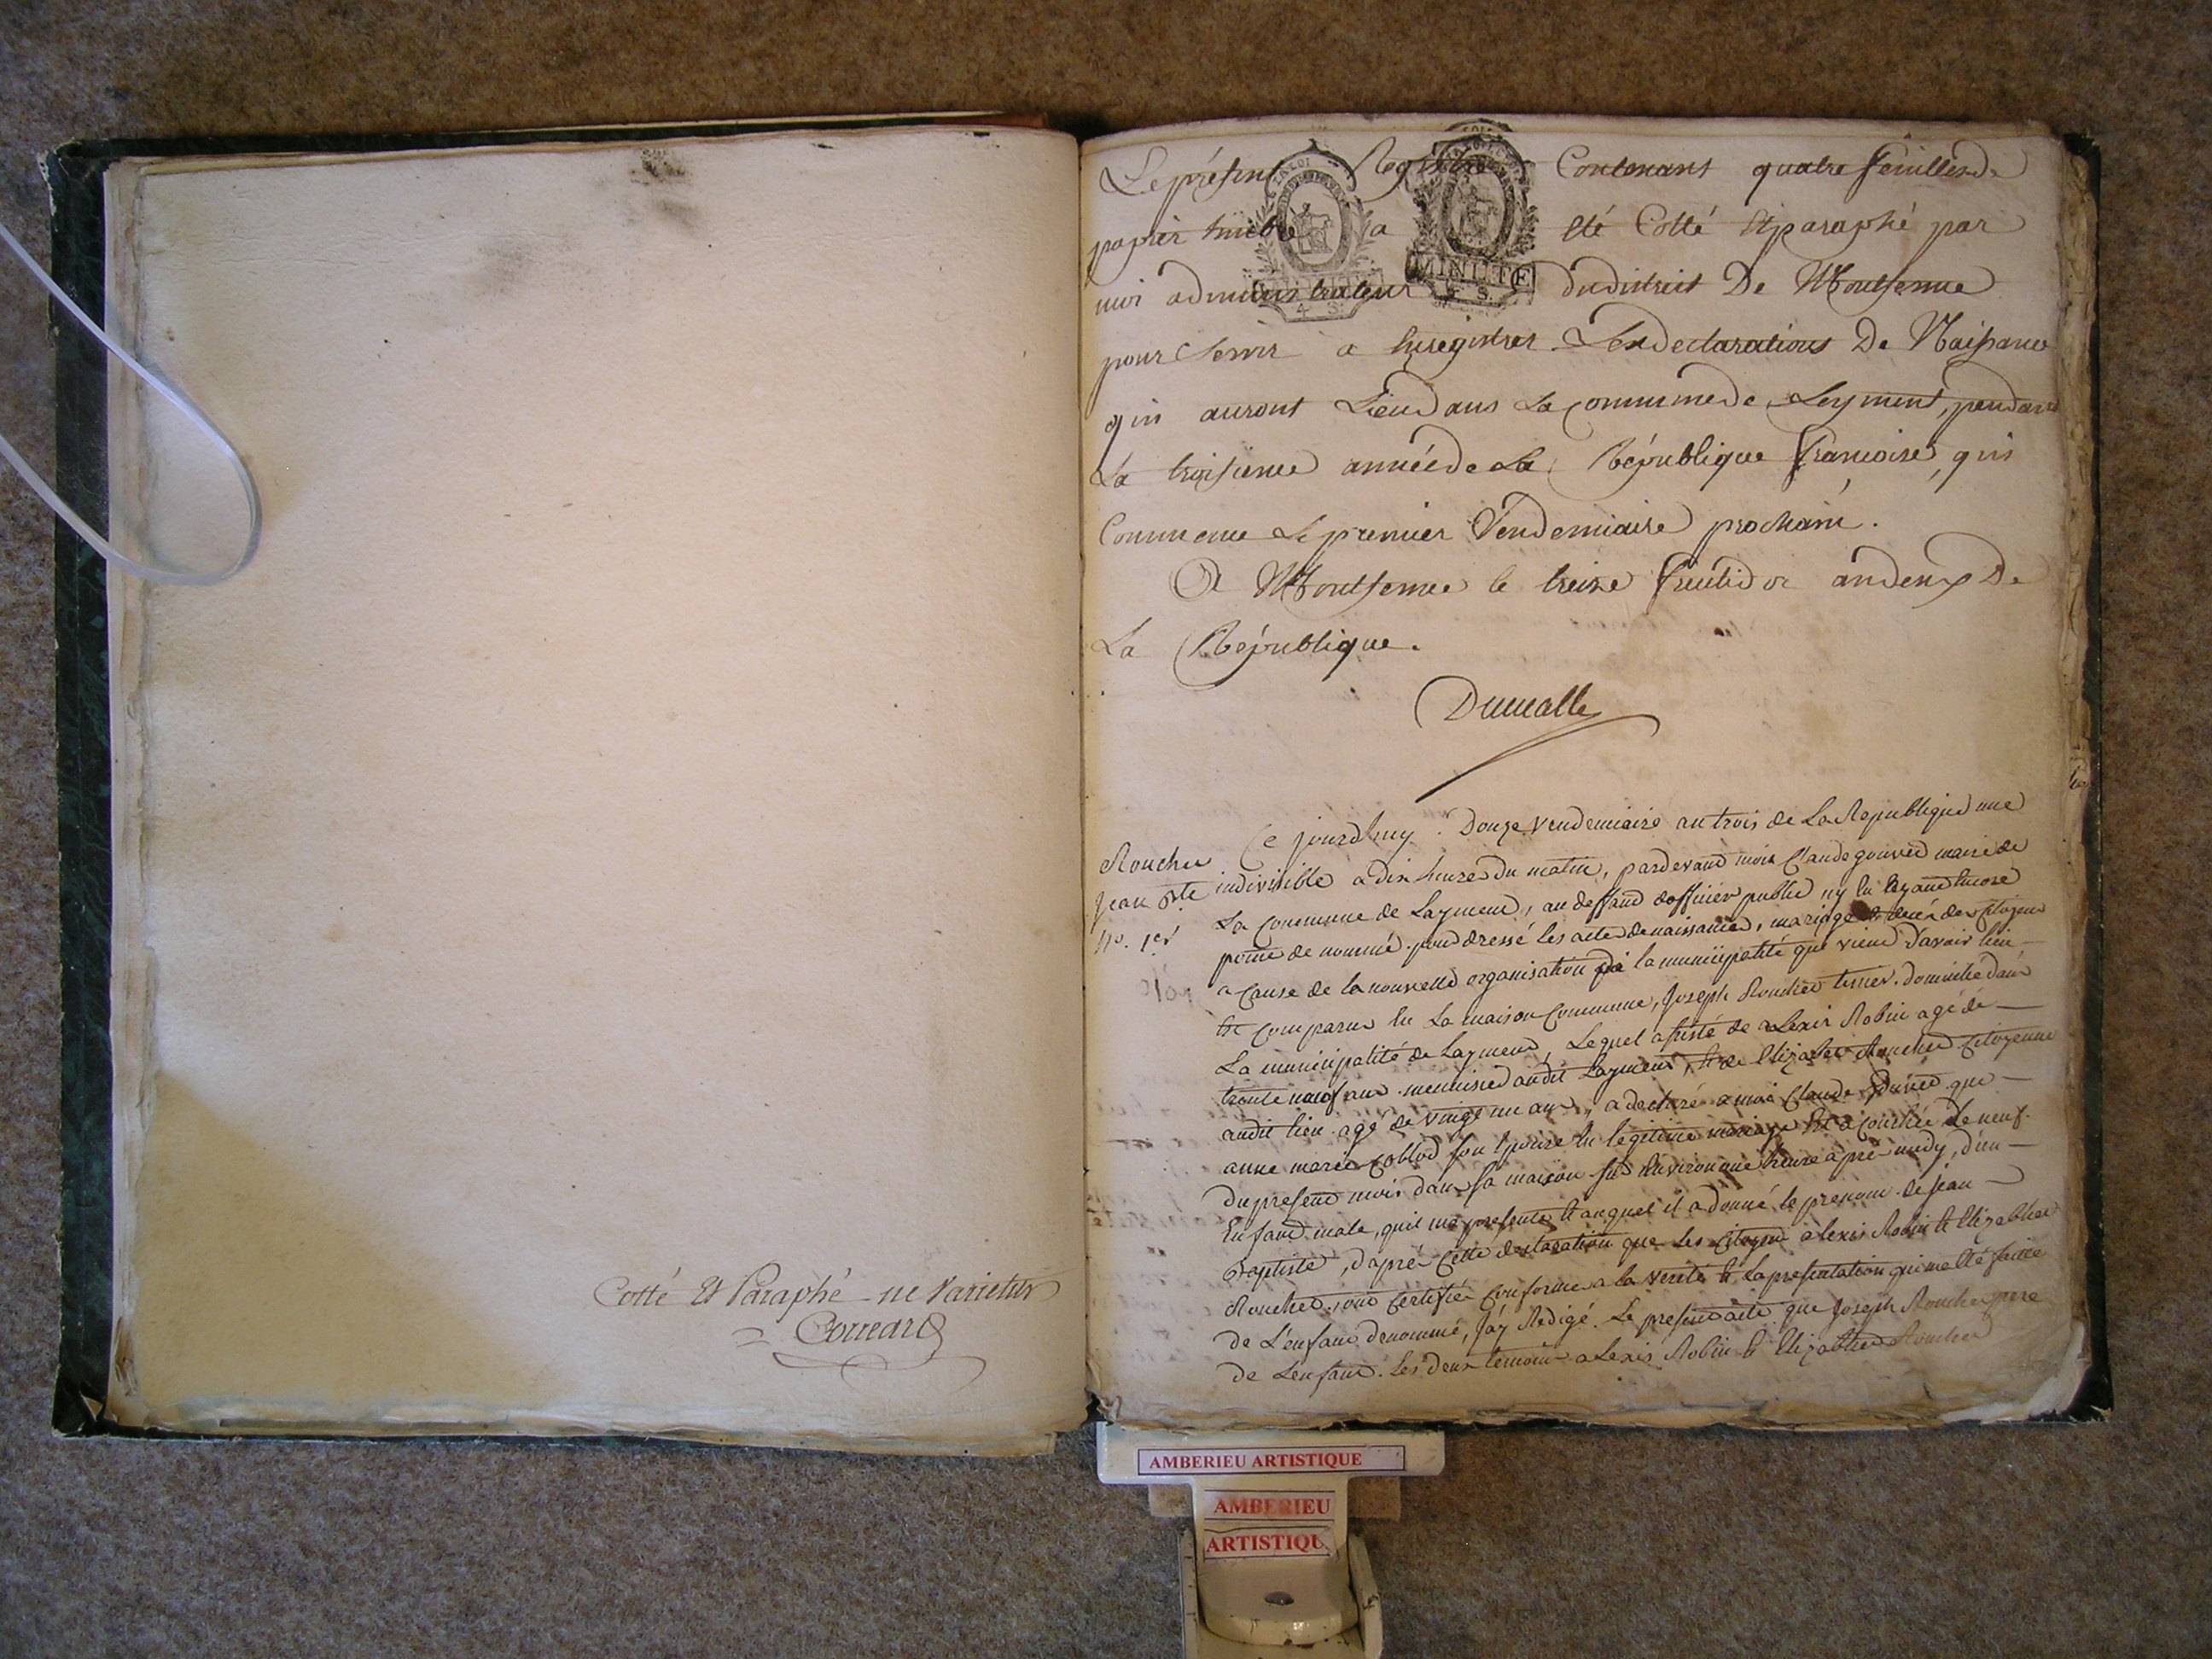 Cotté Et Paraphé ne Varietur
Le présent Registre Contenant quatre feuilles de
papier timbré a été Cotté Et paraphé par
moi administrateur du district De Montferme
pour servir a Enregistrer Les declarations De Naissance
qui auront Lieu dans La commune de Leyment, pendant
La troisieme année de La République francoise, qui
Commence Le premier Vendemiaire prochain.
A Montferme le treize fructidor an deux De
La République.
Dumalle
MINUTE
4 S.
Rouchee
Jean Bte
No. 1er
Ce jourdhuy Douze Vendemiaire an trois de La Republique une
indivisible a dix heures du matin, pardevant moi Claude gouved maire de
La Commune de Layment, au deffaud dofficier public ny En Ayant Encore
point de nommé pour dressé les acte de naissance, mariage et decés des citoyens
a Cause de la nouvelle organisation de la municipalité qui vient d'avoir lieu
Est Comparue En La maison Commune, Joseph Rouchee domicilié dans
La municipalité de Layment, Lequel assisté de alexis Robin agé de
trente neuf ans menuisier audit Layment, Et de Elizabet Rouchee Citoyenne
audit lieu agé de vingt un ans, a declaré a moi Claude que
anne marie Collod son Epouse En legitime mariage Est acouchée Le neuf
du present mois dans sa maison sur Environ une heure apré midy, d'un
Enfant male, quil me presente Et auquel il a donné le prenom de jean
Baptiste, d'apré Cette declaration que Les citoyens alexis Robin Et Elizabet
Rouchee, ont Certifié Conforme a la verité Et La presentation qui ma Eté faitte
de L'enfant denommé, J'ay Redigé Le present acte que Joseph Rouchee pere
de L'enfant. Les deux temoins alexis Robin Et Elizabet Rouchee
AMBERIEU ARTISTIQUE
AMBERIEU
ARTISTIQU